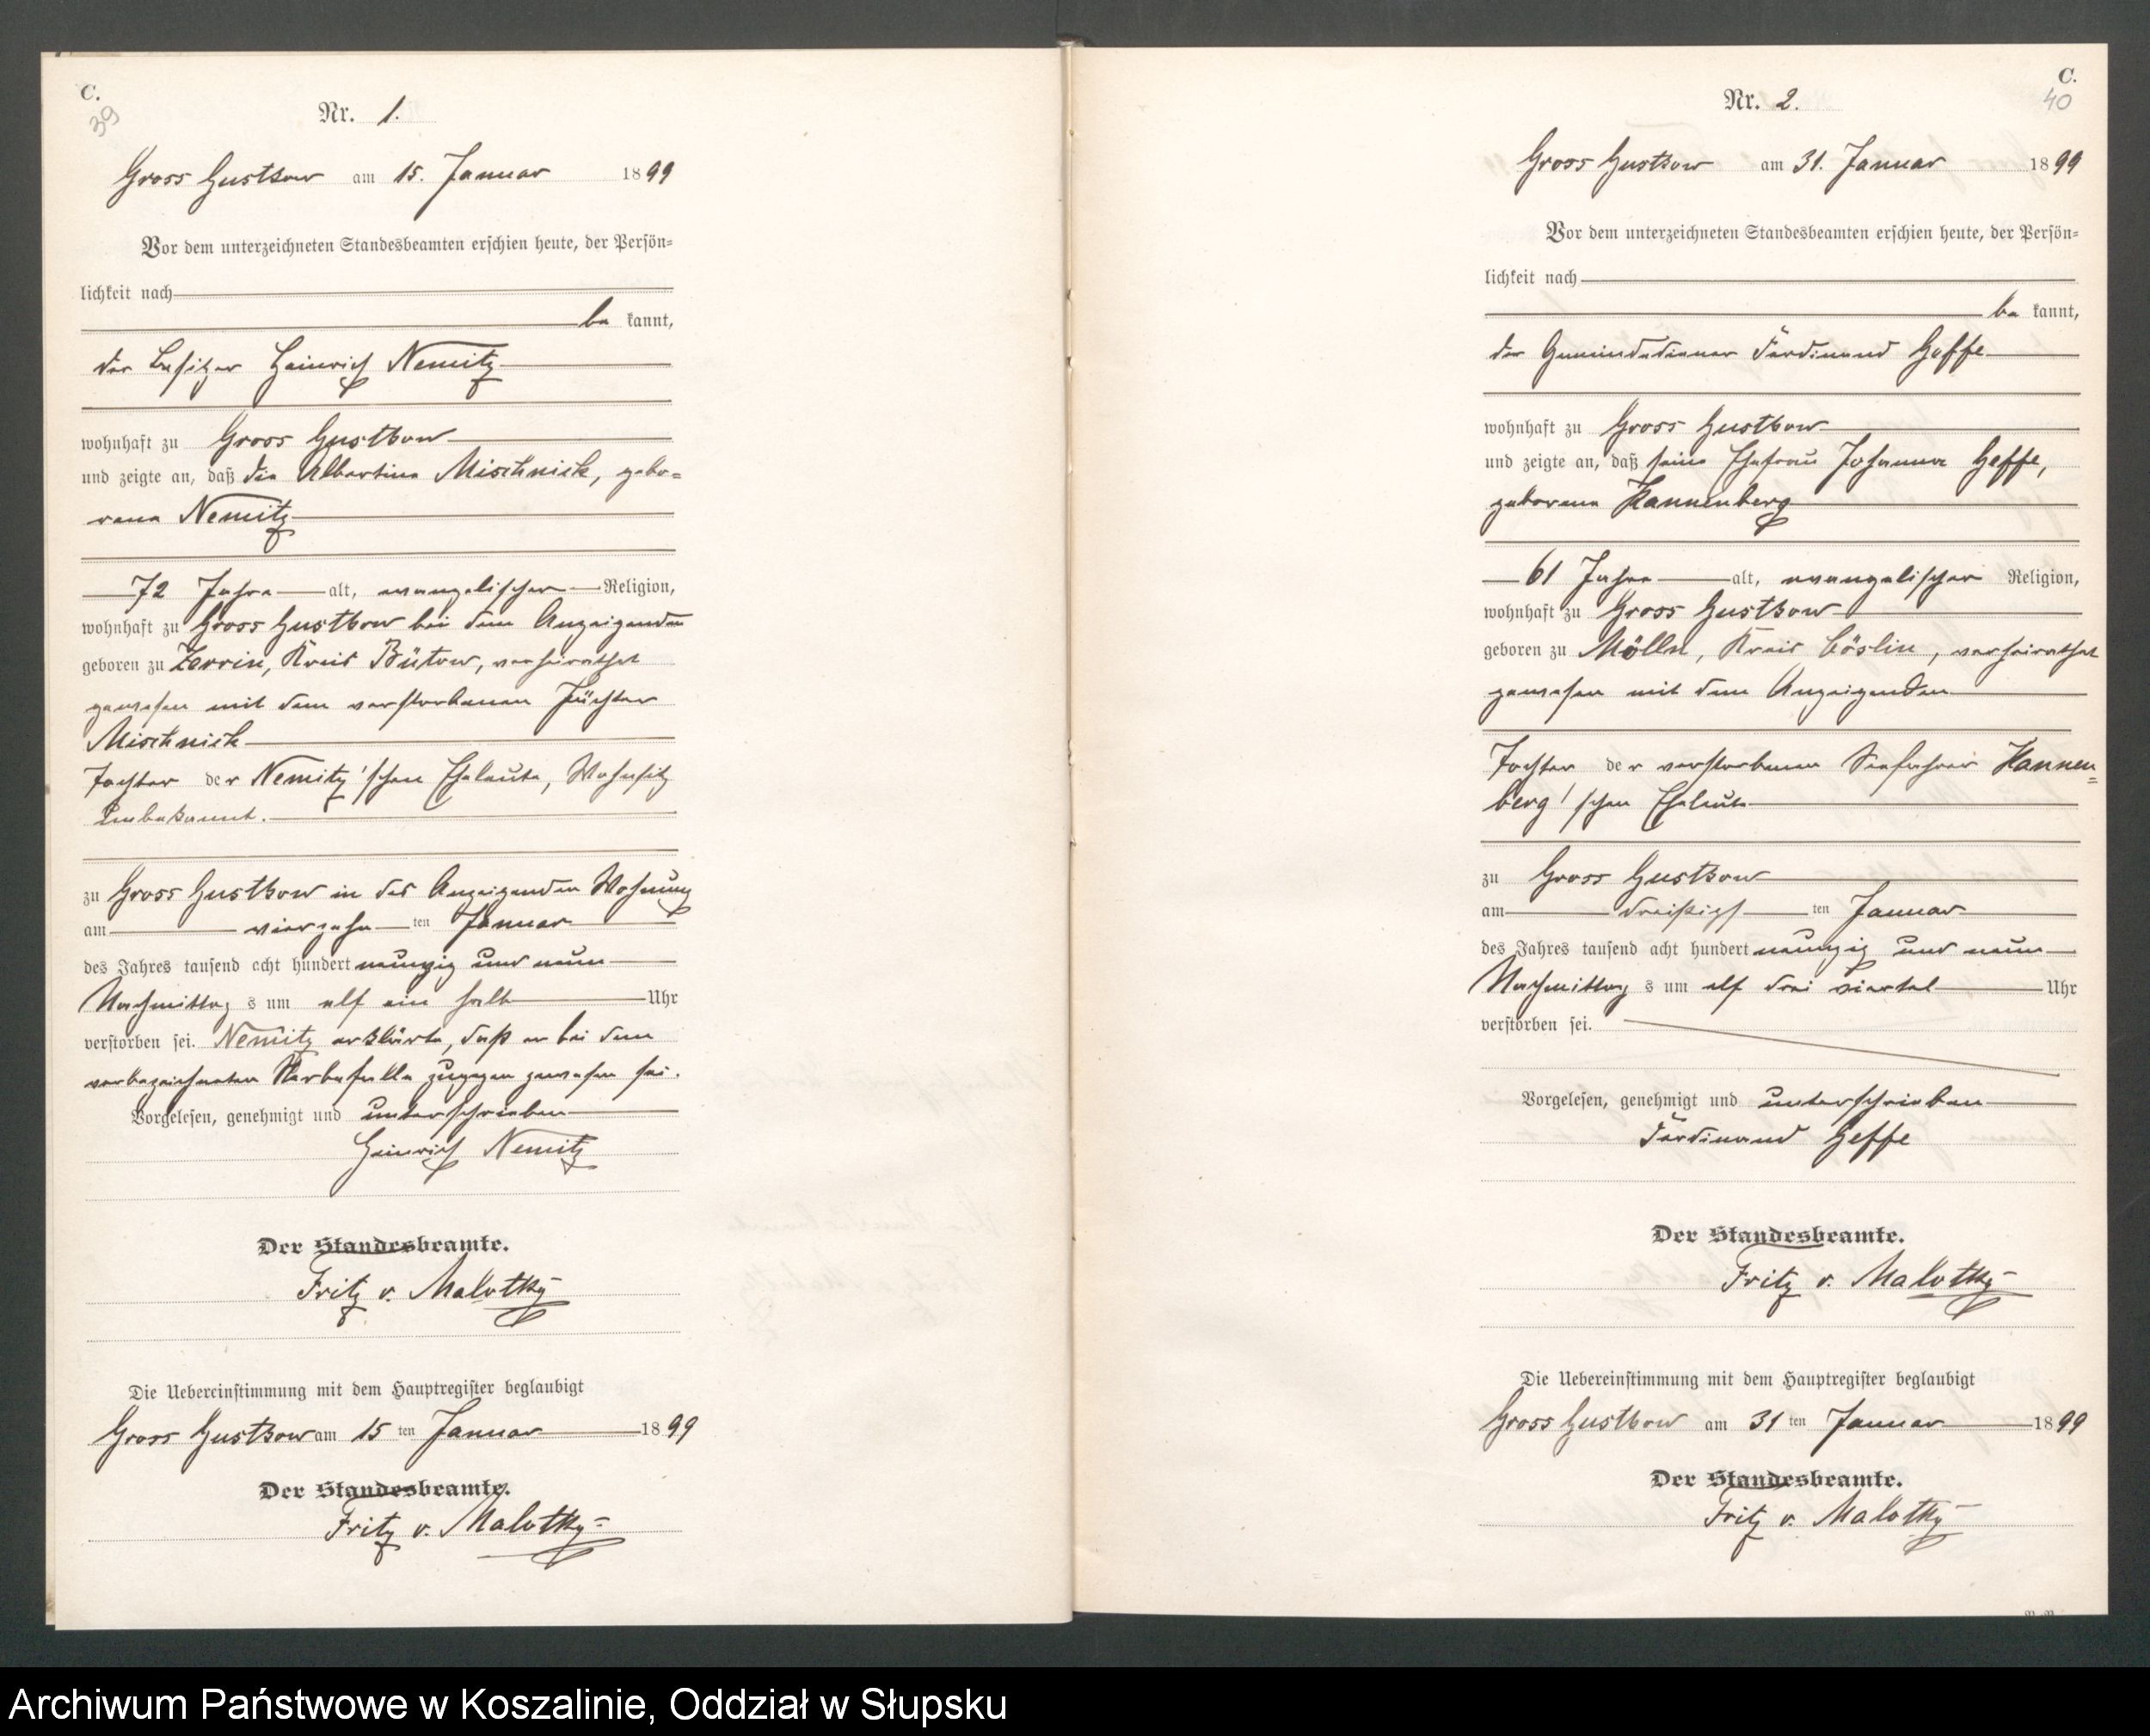 C.
39
Nr. 1.
Gross Gustkow am 15. Januar 1899
Vor dem unterzeichneten Standesbeamten erschien heute, der Persön=
lichkeit nach
be kannt,
der Besitzer Heinrich Nemitz
wohnhaft zu Gross Gustkow
und zeigte an, daß die Albertine Mischnick, gebo=
rene Nemitz
72 Jahre alt, evangelischer Religion,
wohnhaft zu Gross Gustkow bei dem Anzeigenden
geboren zu Zerrin, Kreis Bütow, verheirathet
gewesen mit dem verstorbenen Pächter
Mischnick
Tochter der Nemitz'schen Eheleute, Wohnsitz
unbekannt.
zu Gross Gustkow in des Anzeigenden Wohnung
am vierzehn ten Januar
des Jahres tausend acht hundert neunzig und neun
Nachmittag s um elf ein halb Uhr
verstorben sei. Nemitz erklärte, daß er bei dem
vorbezeichneten Sterbefalle zugegen gewesen sei.
Vorgelesen, genehmigt und unterschrieben
Heinrich Nemitz
Der Standesbeamte.
Fritz v. Malotky
Die Uebereinstimmung mit dem Hauptregister beglaubigt
Gross Gustkow am 15 ten Januar 1899
Der Standesbeamte.
Fritz v. Malotky
C.
40
Nr. 2.
Gross Gustkow am 31. Januar 1899
Vor dem unterzeichneten Standesbeamten erschien heute, der Persön=
lichkeit nach
be kannt,
der Gemeindediener Ferdinand Geffe
wohnhaft zu Gross Gustkow
und zeigte an, daß seine Ehefrau Johanna Geffe,
geborene Hannenberg
61 Jahre alt, evangelischer Religion,
wohnhaft zu Gross Gustkow
geboren zu Mölln, Kreis Cöslin, verheirathet
gewesen mit dem Anzeigenden
Tochter der verstorbenen Hannen=
berg'schen Eheleute
zu Gross Gustkow
am dreißigs ten Januar
des Jahres tausend acht hundert neunzig und neun
Nachmittag s um elf drei viertel Uhr
verstorben sei.
Vorgelesen, genehmigt und unterschrieben
Ferdinand Geffe
Der Standesbeamte.
Fritz v. Malotky
Die Uebereinstimmung mit dem Hauptregister beglaubigt
Gross Gustkow am 31 ten Januar 1899
Der Standesbeamte.
Fritz v. Malotky
Archiwum Państwowe w Koszalinie, Oddział w Słupsku